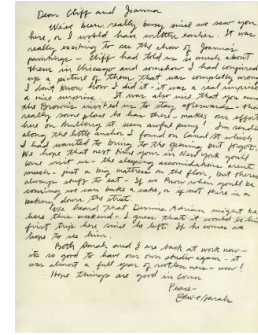 Dear Cliff and Joanna
We've been really busy since we saw you
here, or I would have written earlier. It was
really exciting to see the show of Joanna's
paintings – Cliff had told me so much about
them in Chicago and somehow I had conjured
up a picture of them that was completely wrong
I don't know how I did it – it was a real surprise
a nice surprise. It was also nice that you and
the Browns invited us to stay afterwards – that
really some place he has there – makes our effort
here on building it seem awful puny! I'm sending
along the little anchor I found on Canal St. which
I had wanted to bring to the opening but forgot.
We hope that next time you're in New York you'll
come visit us – the sleeping accomodations aren't
much – just a big mattress on the floor, but there's
always stuff to eat – If we know when you'll be
coming we can bake a cake, or if not there is a
bakery down the street.
We heard that Dennis Adrian might be
here this weekend – I guess that it would be his
first trip here since he left. If he comes we
hope to see him.
Both Sarah and I are back at work now –
its so good to have our own studios again – it
was almost a full year of restlessness – wow!
Hope things are good in Conn
Peace –
Edw & Sarah